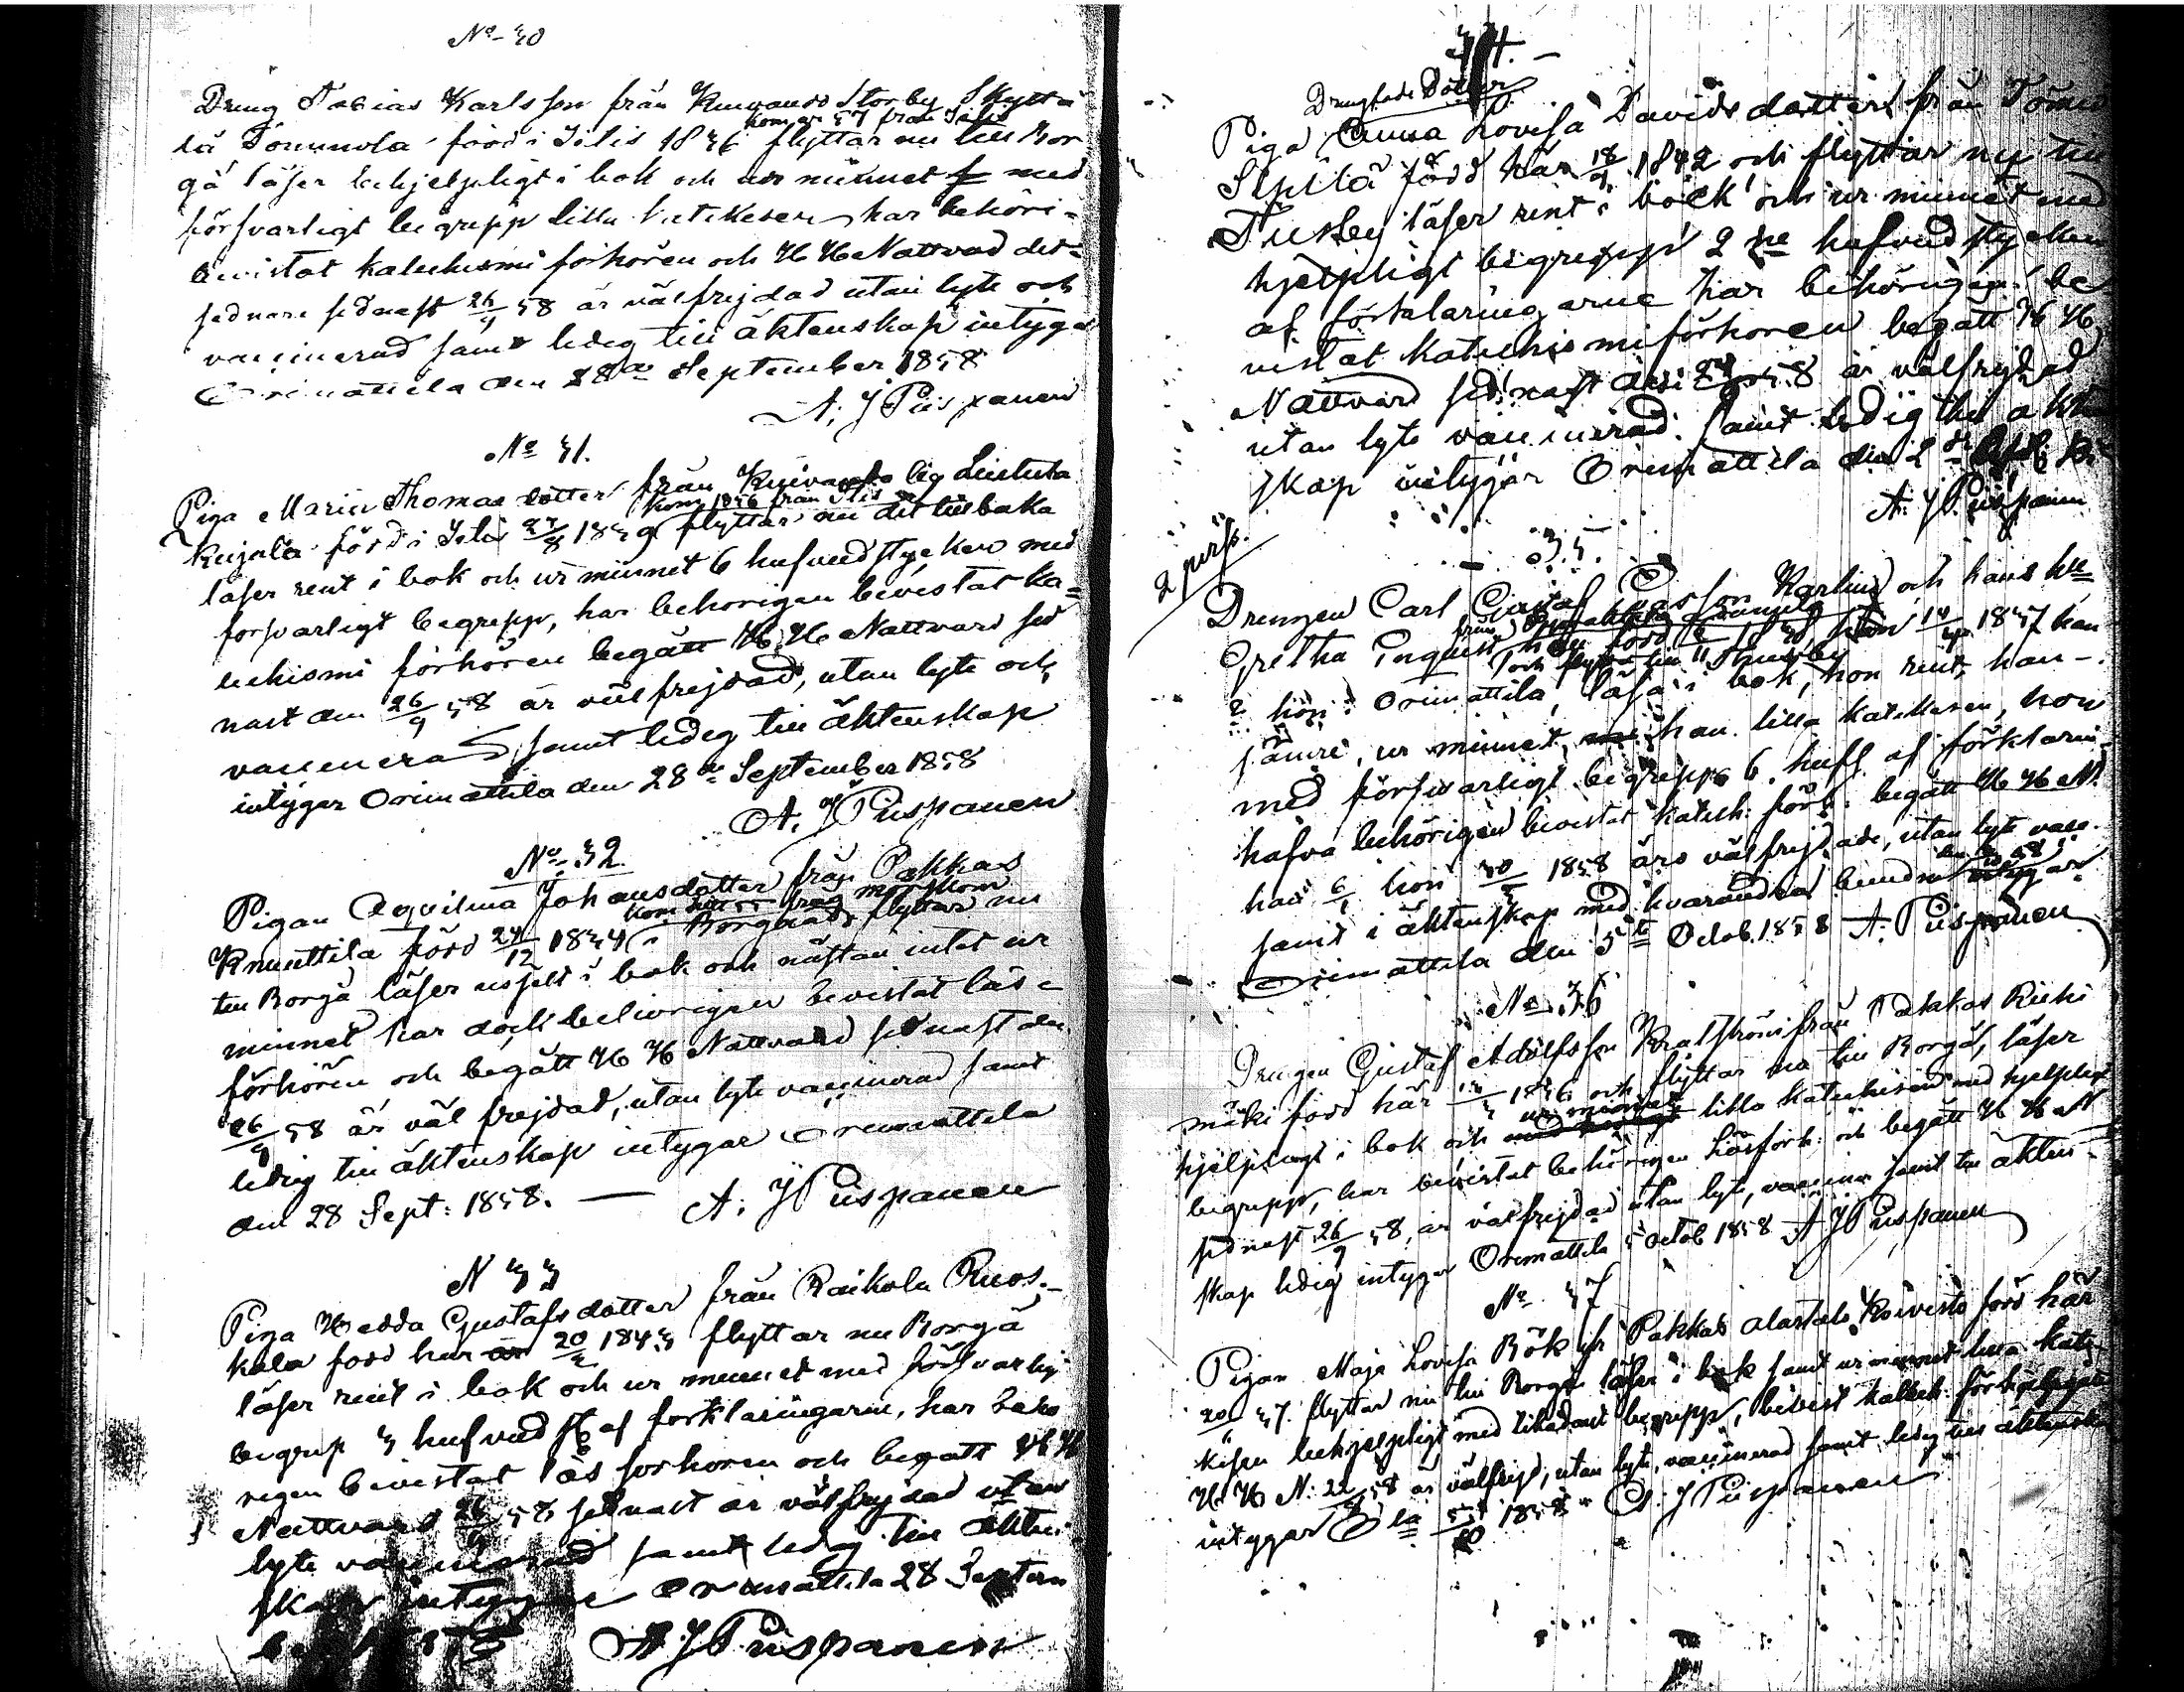 No 30
Dreng Tobias Karlsson från Kuivando Storby Skyttä
kom år 57 från Jitis
lä Tommola född i Jitis 1836 flyttar nu till Bor
gå läser behjelpligt i bok och ur minnet med
försvarligt begrepp lilla katekesen har behöri-
bevistat katechismi förhören och H H Nattvard det
sednare sednast 26/9 58 är välfrejdad utan lyte och
vaccinerad samt ledig till äktenskap intygar
Orimattila den 28de September 1858
A. J Piispanen
No 31.
Piga Maria Thomasdotter från Kuivando by
kom 1856 från Itis
född i Itis 1839 flyttar nu dit tillbaka
läser rent i bok och ur minnet 6 hufvudstycken med
försvarligt begrepp, har behörigen bevistat ka-
techismi förhören begått H. H Nattvard sed
nast den 26/9 58 är välfrejdad, utan lyte och
vaccinerad samt ledig till äktenskap
intygar Orimattila den 28de September 1858
A. J Piispanen
No 32.
Pigan Agvilina Johansdotter från Pakkas
Knuuttila född 24/12 1834 i Borgnäs flyttar nu
till Borgå läser uselt i bok och nästan intet ur
minnet har dock behörigen bevistat läs-
förhören och begått H H Nattvard sednast den
26/9 58 är väl frejdad, utan lyte vaccinerad samt
ledig till äktenskap intygar Orimattila
den 28 Sept: 1858. — A. J Piispanen
N 33
Piga Hedda Gustafsdotter från Räikölä Ruos-
kala född här 20/3 1843 flyttar nu Borgå
läser rent i bok och ur minnet med försvarligt
begrep 3 hufvudst af förklaringarne, har behö
rigen bevistat läs förhören och begått H H
Nattvard 26/9 58 sednast är välfrejdad utan
lyte vaccinerad samt ledig till äkten
skap intygar Orimattila 28 Septem
A J Piispanen
34. -
Piga Anna Lovisa Davidsdotter från
Seppilä född här 18/9 1842 och flyttar nu till
Tusby läser rent i bock och ur minnet med
hjelpligt begrepp 2ne hufvudstycken
af förklaringarne har behörigen be
vistat katechismi förhören begått H H
Nattvard sednast den 58 är välfrejdad
utan lyte vaccinerad. samt ledig till äkten
skap intygar Orimattila den 2de
A. J Piispanen
2 pers.
35.
Drengen Carl Gustaf Karlund och hans hu
Gretha Enqvist
hon i Orimattila, läsa i bok, hon rent, han -
sämre, ur minnet, han lilla katekesen, hon
med försvarligt begrepp 6 hufs af förklarin-
hafva behörigen bevistat katech: förh: begått H H N.
han hon 1858 äro välfrejdade, utan lyte vacc.
samt i äktenskap med hvarandra bundne intygar
Orimattila den 5te Octob. 1858 A. Piispanen
No. 36
Drengen Gustaf Adolfsson från Pakkas Riihi
mäki född här 1836 och flyttar nu till Borgå, läser
hjelpligt i bok och ur minnet lilla katechisen med hjelpligt
begrepp, har bevistat behörigen Läsförh: och begått H H N
sednast 26/9 58, är välfrejdad utan lyte, vaccine samt till äkten-
skap ledig intygar Orimattila 5 Octob 1858 A J Piispanen
No. 37
Pigan Maja Lovisa Bök fr Pakkas Alastalo Koivisto född här
20 37. flyttar nu till Borgå läser i bok samt ur minnet lilla kate-
kisen behjelpligt med likadant begrepp, bevist katech: förh: begått
H H N: 22/8 58 är välfrejd, utan lyte, vaccinerad samt ledig till äktenskap
intygar O la 5/10 1858 A. J Piispanen